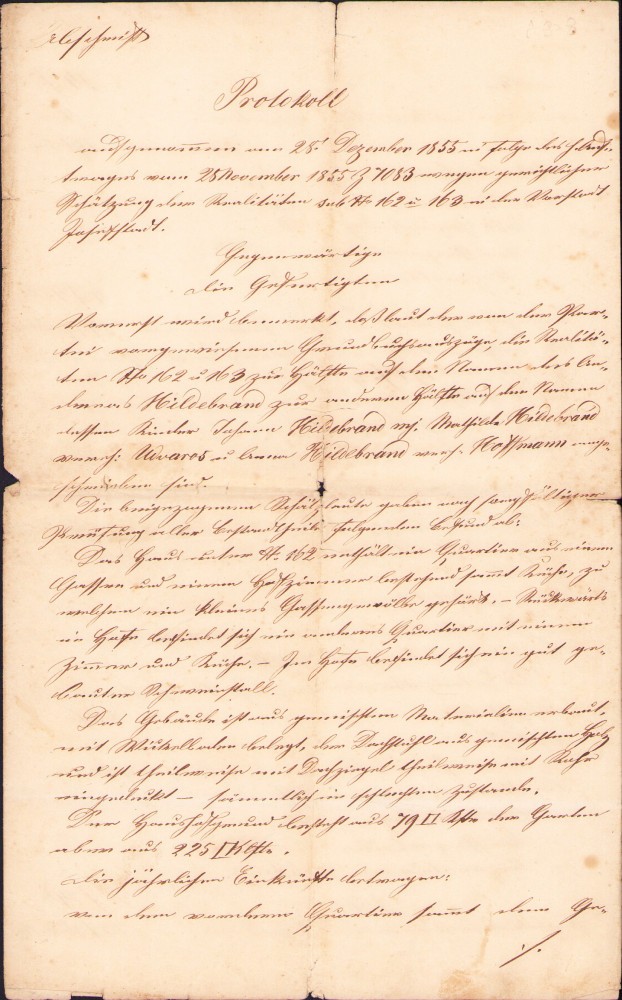 Abschrift
Protokoll
aufgenommen am 28t Dezember 1855 in Folge des h. Auf-
trages vom 28 November 1855 Z 7083 wegen gerichtlicher
Schätzung der Realitäten sub № 162 u 163 in der Vorstadt
Josefstadt.
Gegenwärtige
die Gefertigten
Vorerst wird bemerkt, daß laut der von der Par-
tei vorgewiesenen Grundbuchsauszüge, die Realitä-
ten No 162 u 163 zur Hälfte auf den Namen des An-
dreas Hildebrand zur anderen Hälfte auf den Namen
dessen Kinder Johann Hildebrand Mathilde Hildebrand
verh: Udvaros u Anna Hildebrand verh. Hoffmann ange-
schrieben sind.
Die beigezogenen Schätzleute gaben nach sorgfältiger
Prüfung aller Bestandtheile folgenden Befund ab:
Das Haus unter № 162 enthält ein Quartier aus einem
Gassen und einem Hofzimmer bestehend sammt Küche, zu
welchem ein kleines Gassengewölbe gehört. – Rückwärts
im Hofe befindet sich ein anderes Quartier mit einem
Zimmer und Küche. – Im Hofe befindet sich ein gut ge-
bauter Schweinstall.
Das Gebäude ist aus gemischten Materialien erbaut,
mit belegt, der Dachstuhl aus gemischtem Holz
und ist theilweise mit Dachziegel theilweise mit Rohr
eingedeckt – sämmtlich in schlechtem Zustande.
Der Haushofgrund besteht aus 79 □ Klftr der Garten
aber aus 225 □ Klftr.
Die jährlichen Einkünfte betragen:
von dem vorderen Quartier sammt dem Ge-
./.